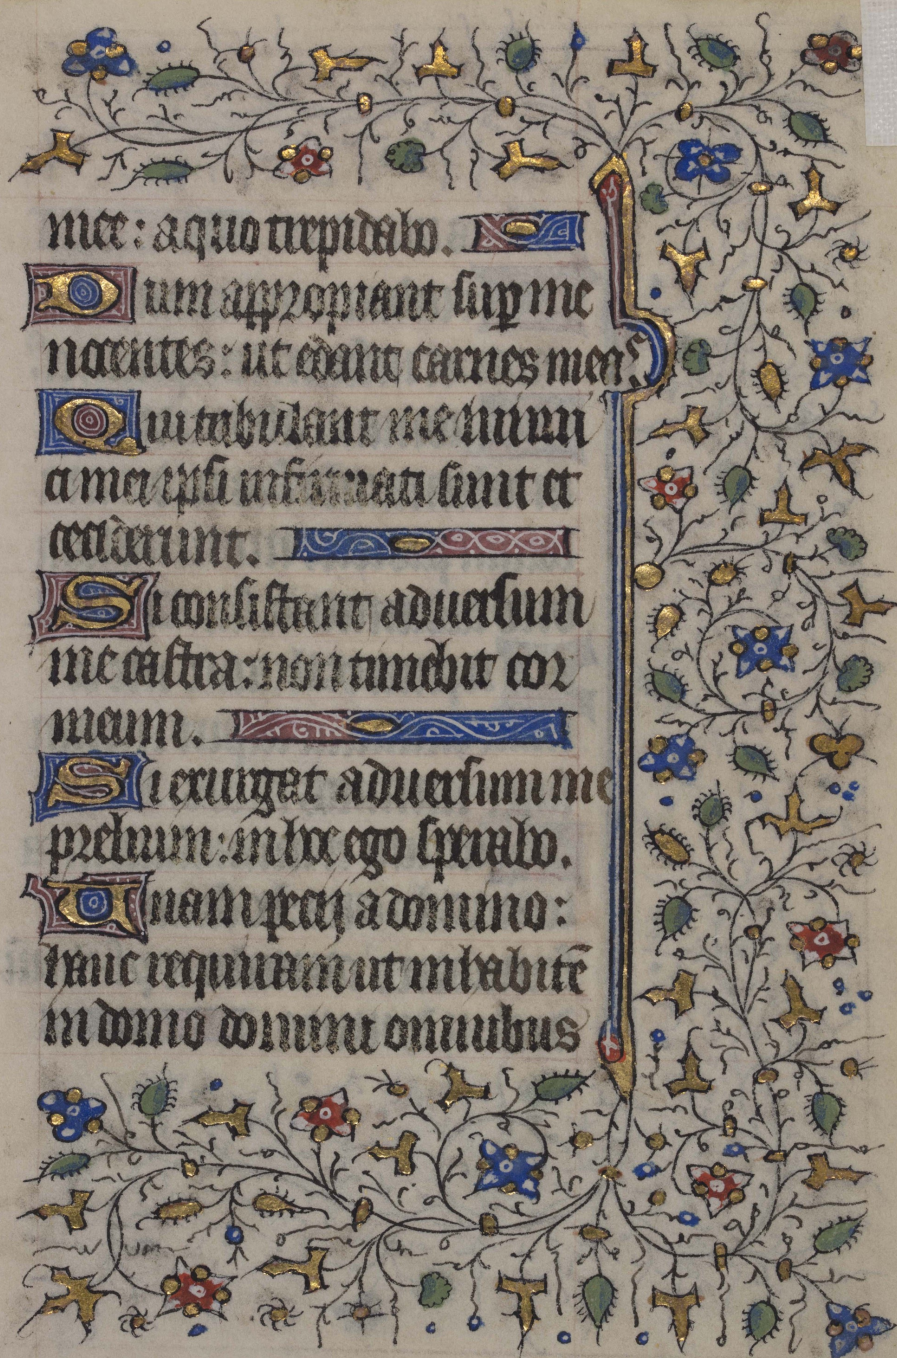 mee: a quo trepidabo.
Dum appropiant sup me
nocentes: ut edant carnes meas
Qui tribulant me inimi
ci mei ipsi infirmati sunt et
ceciderunt.
Si consistant adversum
me castra: non timebit cor
meum.
Si exurgat adversum me
prelium: in hoc ego sperabo.
Unam pecij a domino:
hanc requiram ut inhabitē
in domo domini omnibus